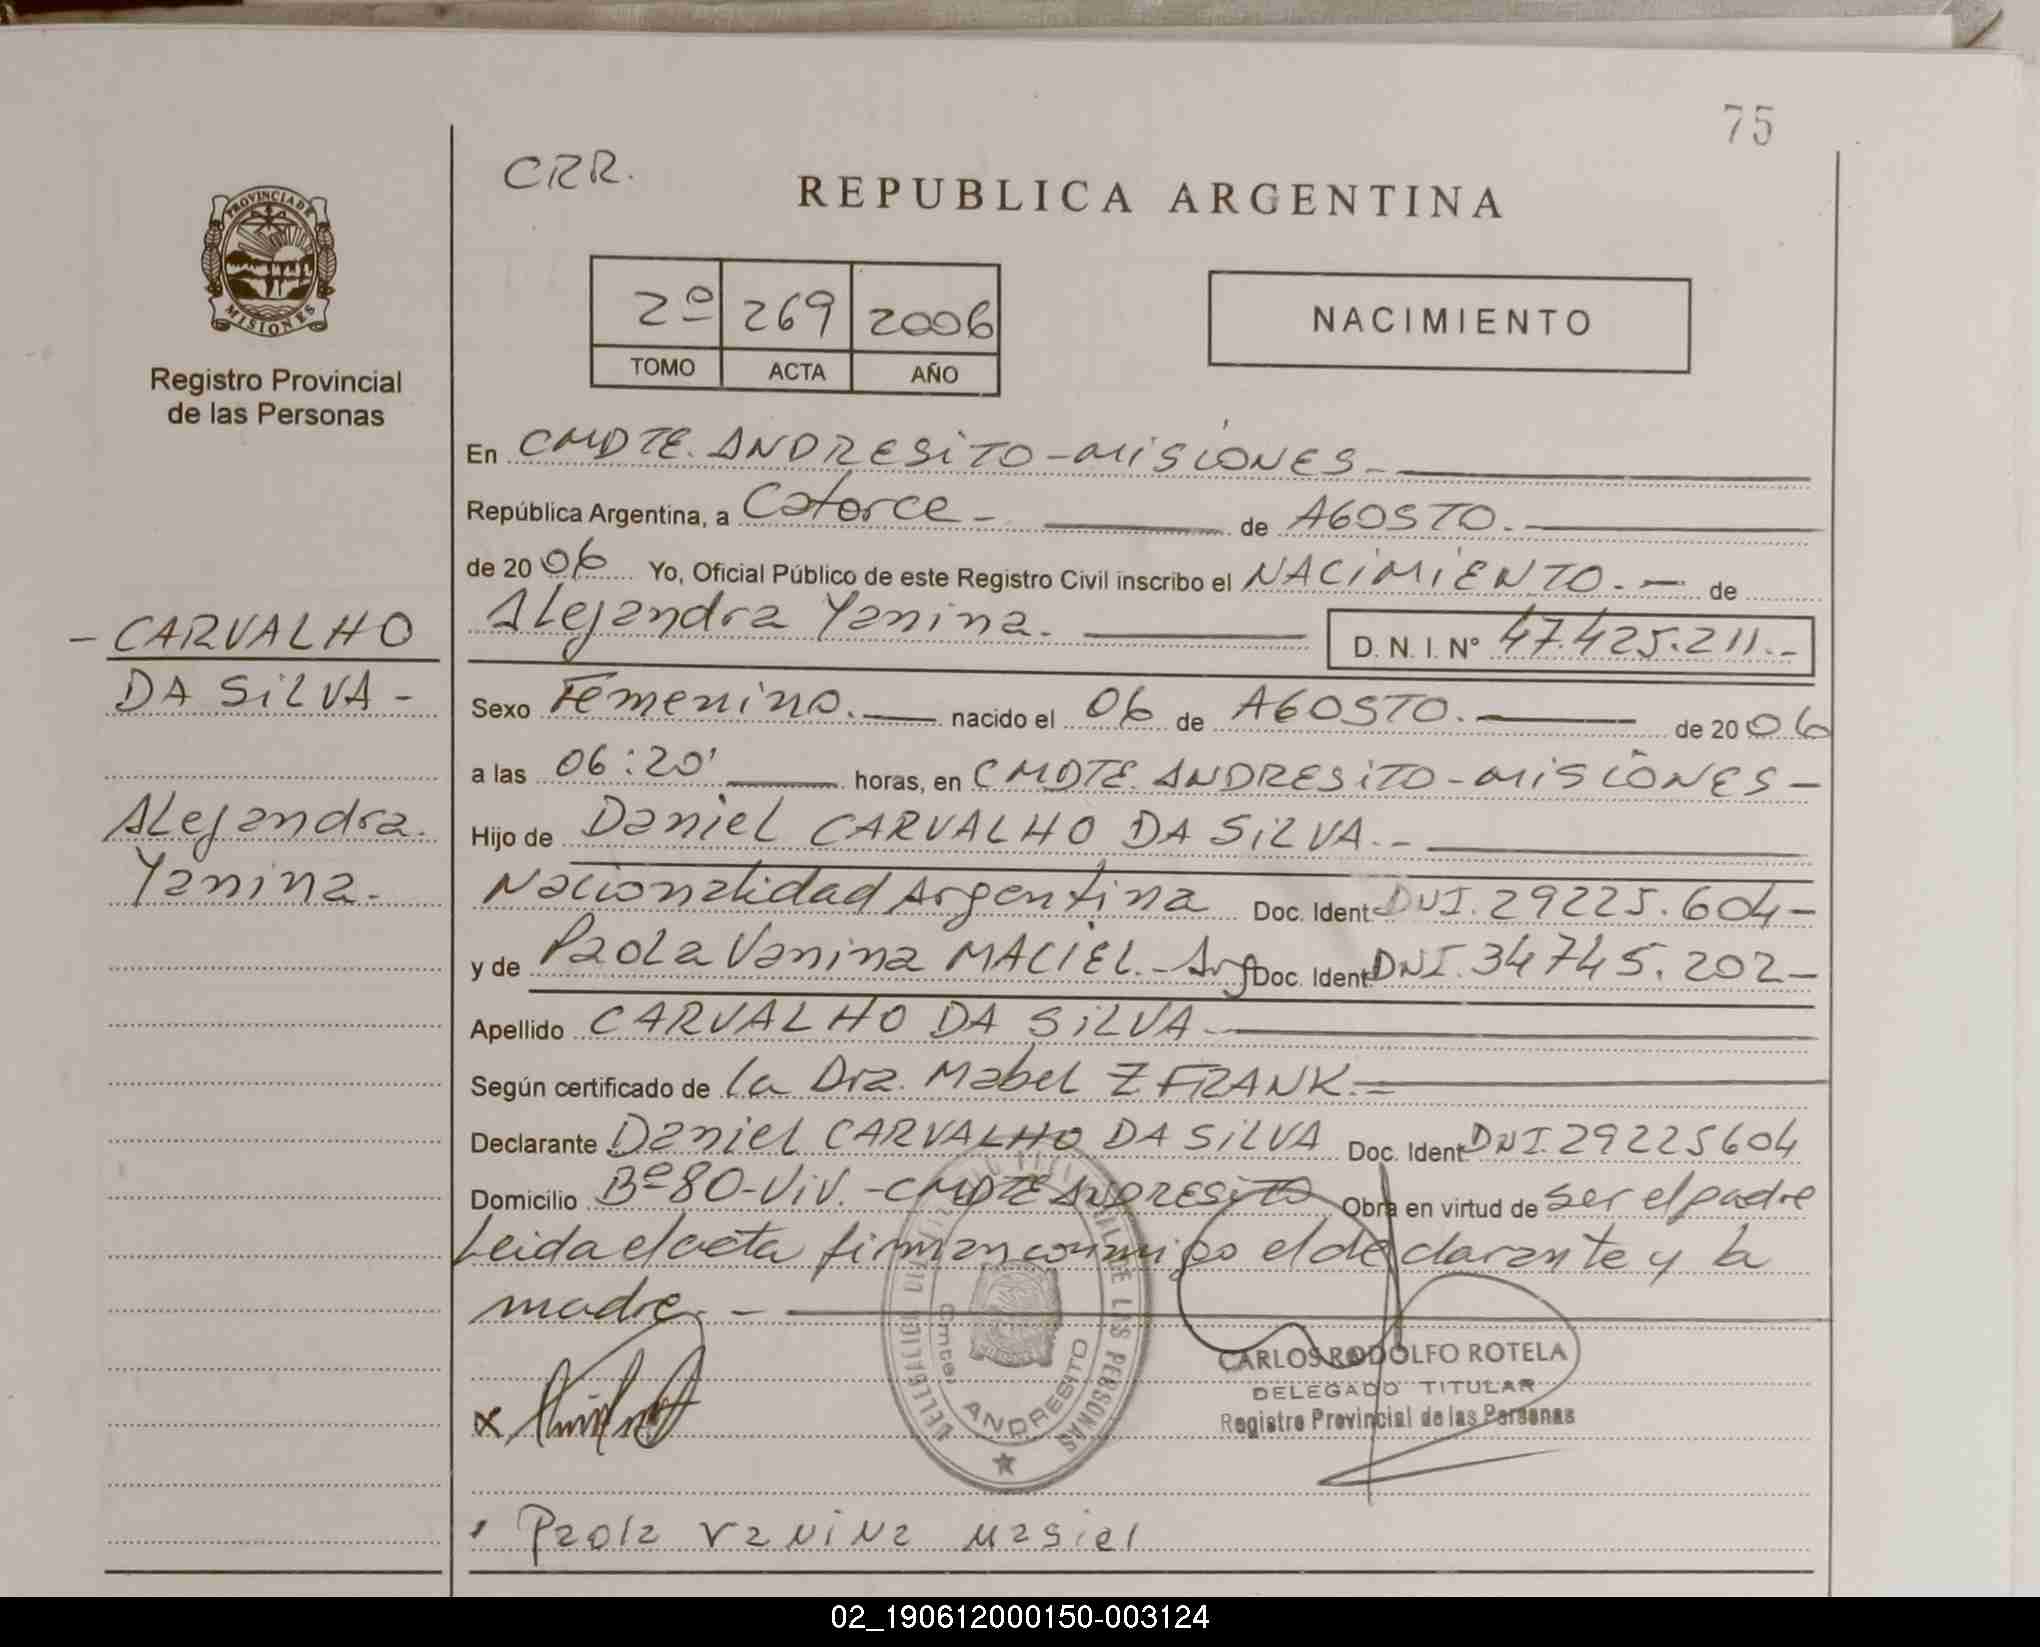 75
CRR.
REPUBLICA ARGENTINA
PROVINCIA DE MISIONES
Registro Provincial
de las Personas
2º 269 2006
TOMO ACTA AÑO
NACIMIENTO
En CMDTE. ANDRESiTO-MiSiONES-
República Argentina, a Catorce - de AGOSTO.
de 2006 Yo, Oficial Público de este Registro Civil inscribo el NACiMiENTO.- de
Alejandra Yanina. D. N. I. Nº 47.425.211.-
- CARVALHO
DA SiLVA -
Alejandra.
Yanina.
Sexo Femenino. nacido el 06 de AGOSTO. de 2006
a las 06:20' horas, en CMDTE. ANDRESiTO-MiSiONES-
Hijo de Daniel CARVALHO DA SiLVA.-
Nacionalidad Argentina Doc. Ident. DNI. 29225.604-
y de Paola Vanina MACIEL.-Arg Doc. Ident. DNI. 34745.202-
Apellido CARVALHO DA SiLVA-
Según certificado de la Dra. Mabel Z FRANK.=
Declarante Daniel CARVALHO DA SiLVA Doc. Ident. DNI. 29225604
Domicilio Bº80-Viv.-CMDTE ANDRESiTO Obra en virtud de ser el padre
Leida el acta firman conmigo el declarante y la
madre. -
DELEGACION REGISTRO PROVINCIAL DE LAS PERSONAS
Cmte. ANDRESITO
CARLOS RODOLFO ROTELA
DELEGADO TITULAR
Registro Provincial de las Personas
x
Paola vanina masiel
02_190612000150-003124